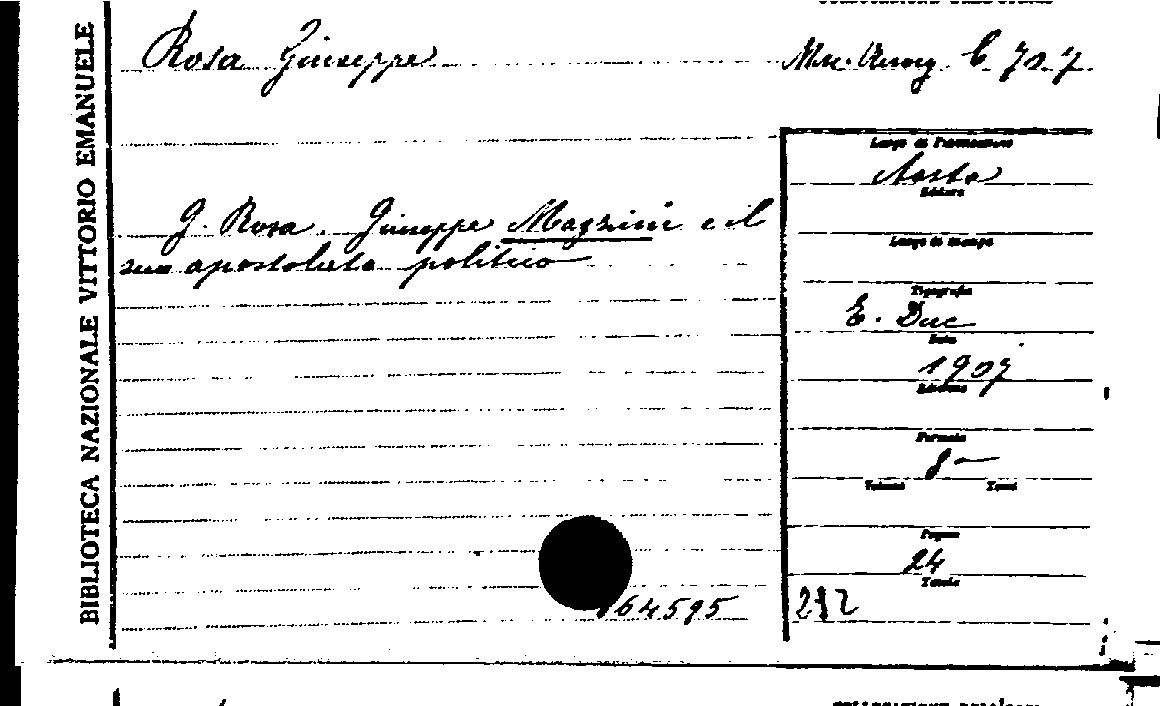 BIBLIOTECA NAZIONALE VITTORIO EMANUELE
Rosa Giuseppe
G. Rosa. Giuseppe Mazzini e il
suo apostolato politico
64595
Luogo di Pubblicazione
Aosta
Editore
Luogo di stampa
Tipografia
E. Duc
Data
1907
Edizione
Formato
8
Volumi Tomi
Pagine
24
Tavole
292